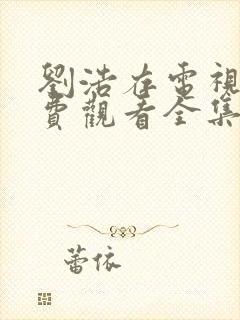 劉浩存電視
費觀看全集
蕾依